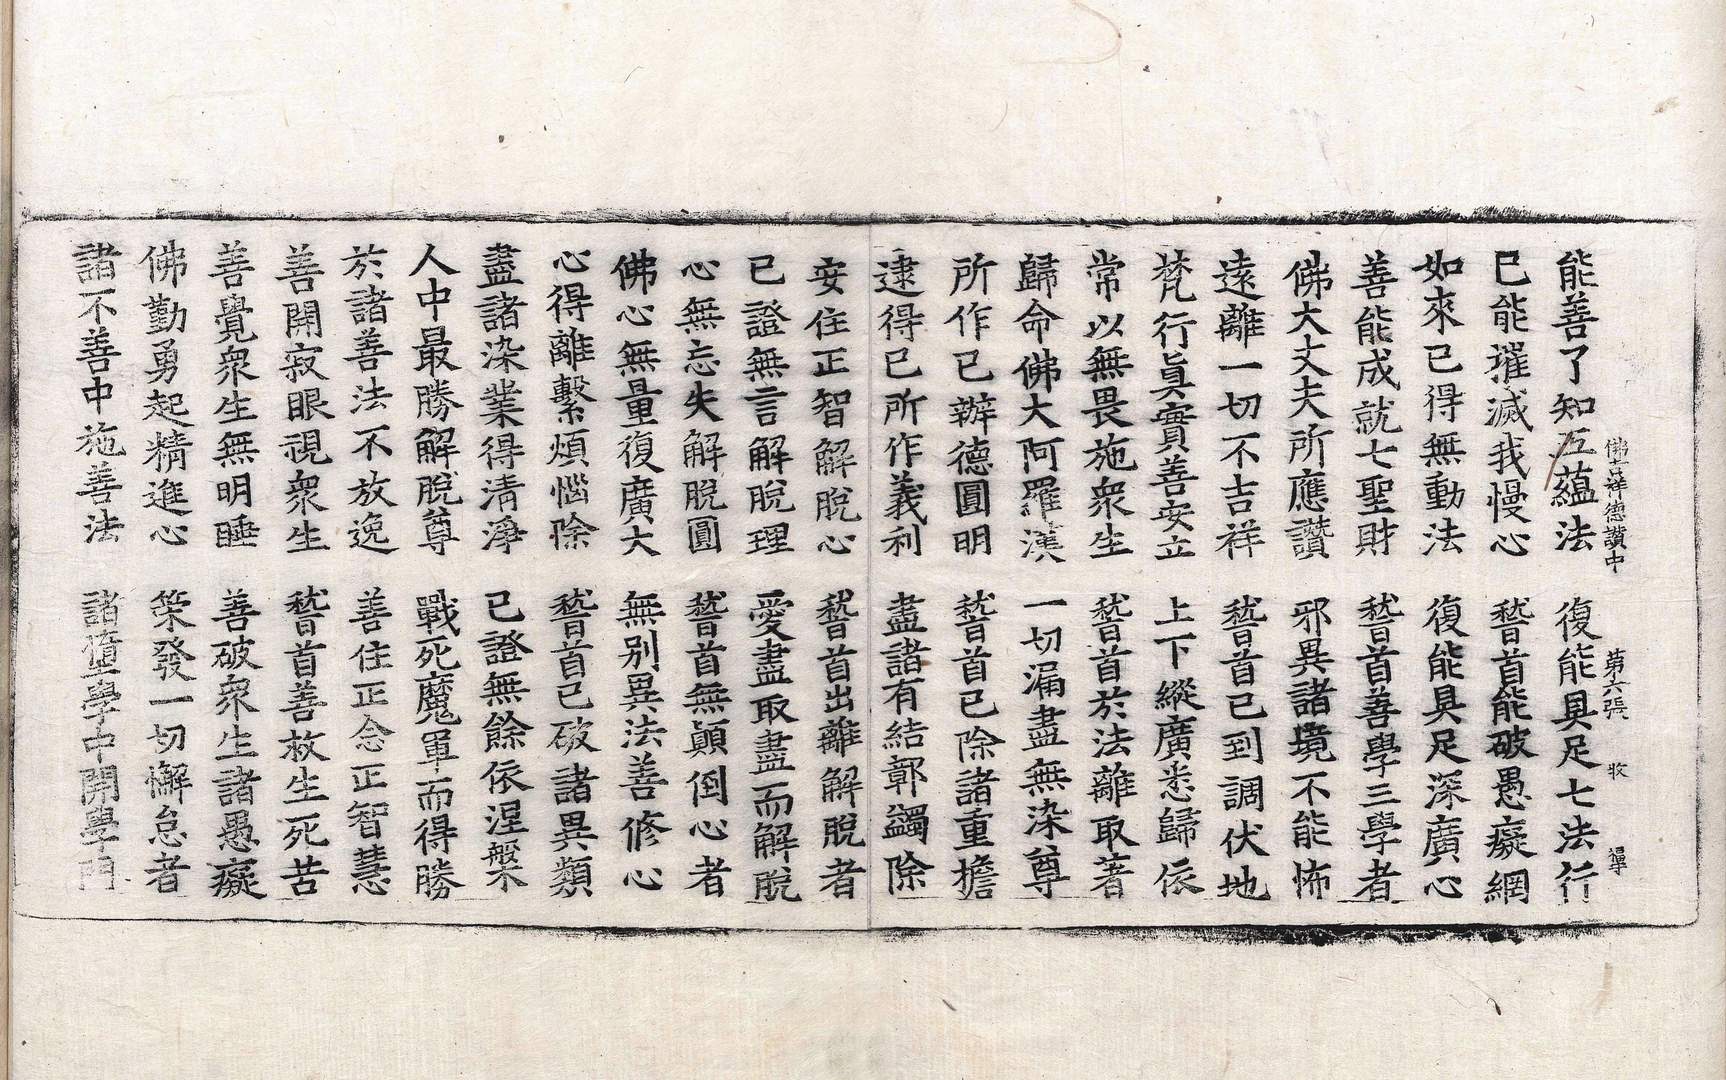 佛吉祥德讚中 第六張 牧 單
能善了知五蘊法 復能具足七法行
已能摧滅我慢心 稽首能破愚癡網
如來已得無動法 復能具足深廣心
善能成就七聖財 稽首善學三學者
佛大丈夫所應讚 邪異諸境不能怖
遠離一切不吉祥 稽首已到調伏地
梵行眞實善安立 上下縱廣悉歸依
常以無畏施衆生 稽首於法離取著
歸命佛大阿羅漢 一切漏盡無染尊
所作已辦德圓明 稽首已除諸重擔
逮得已所作義利 盡諸有結鄣蠲除
安住正智解脫心 稽首出離解脫者
已證無言解脫理 愛盡取盡而解脫
心無忘失解脫圓 稽首無顚倒心者
佛心無量復廣大 無別異法善修心
心得離繫煩惱除 稽首已破諸異類
盡諸染業得淸淨 已證無餘依涅槃
人中最勝解脫尊 戰死魔軍而得勝
於諸善法不放逸 善住正念正智慧
善開寂眼視衆生 稽首善救生死苦
善覺衆生無明睡 善破衆生諸愚癡
佛勤勇起精進心 策發一切懈怠者
諸不善中施善法 諸墮學中開學門